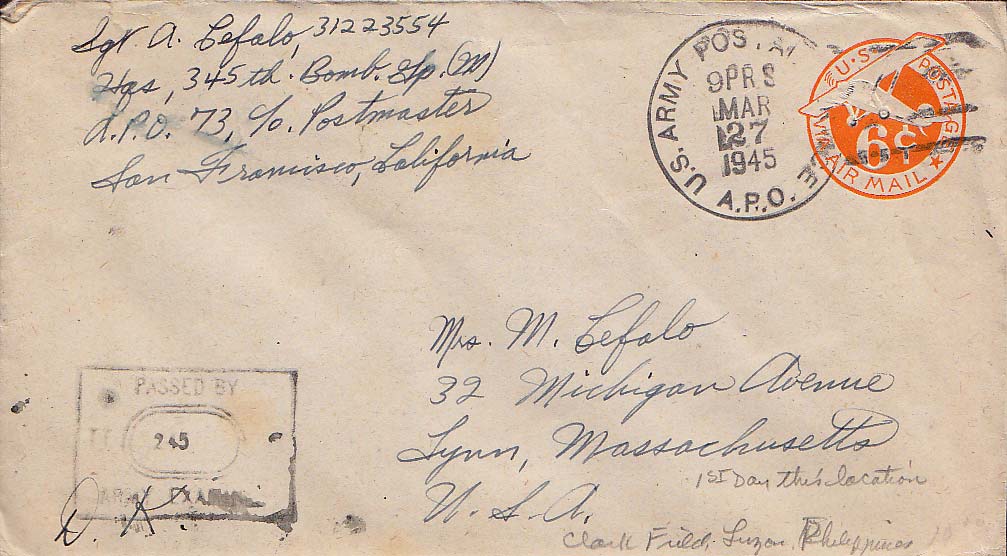 Sgt. A. Cefalo, 31223554
Hqs, 345th. Bomb. Gp. (M)
A.P.O. 73, c/o. Postmaster
San Francisco, California
U.S. ARMY POSTAL
MAR
27
1945
A.P.O.
U.S. POSTAGE
6¢
VIA AIR MAIL
Mrs. M. Cefalo
32 Michigan Avenue
Lynn, Massachusetts
U. S. A.
PASSED BY
245
ARMY EXAMINER
1ST Day this location
Clark Field, Luzon, Philippines